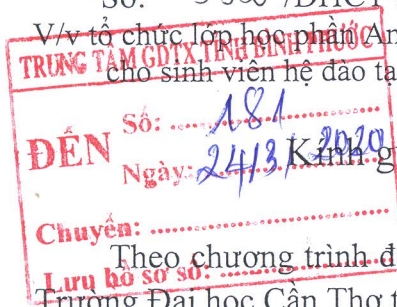 Số: /ĐHCT
V/v tổ chức lớp học phần An
TRUNG TÂM GDTX TỈNH BÌNH PHƯỚC
cho sinh viên hệ đào tạ
ĐẾN
Số: 181
Ngày: 24/3/2020
Kính g
Chuyển:
Theo chương trình đ
Lưu hồ sơ số:
Trường Đại học Cần Thơ t